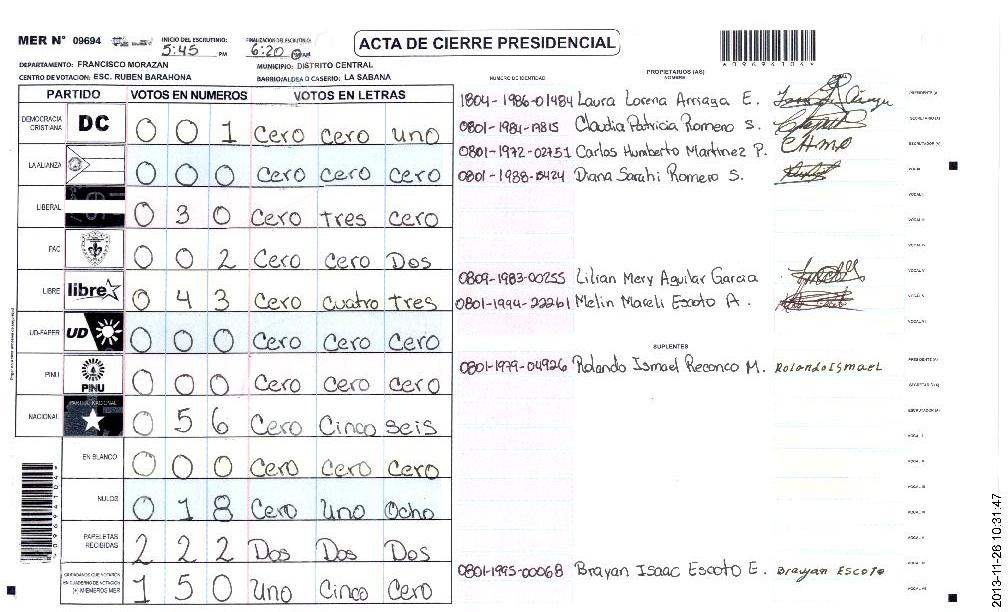 MER N° 09694
INICIO DEL ESCRUTINIO: 5:45 PM
FINALIZACION DEL ESCRUTINIO: 6:20
ACTA DE CIERRE PRESIDENCIAL
DEPARTAMENTO: FRANCISCO MORAZAN
MUNICIPIO: DISTRITO CENTRAL
CENTRO DE VOTACION: ESC. RUBEN BARAHONA
BARRIO/ALDEA O CASERIO: LA SABANA
PARTIDO VOTOS EN NUMEROS VOTOS EN LETRAS
DEMOCRACIA CRISTIANA DC 0 0 1 Cero cero uno
LA ALIANZA 0 0 0 cero cero cero
LIBERAL 0 3 0 Cero tres cero
PAC 0 0 2 Cero Cero Dos
LIBRE libre 0 4 3 Cero cuatro tres
UD-FAPER UD 0 0 0 Cero Cero Cero
PINU PINU 0 0 0 Cero Cero Cero
NACIONAL PARTIDO NACIONAL 0 5 6 Cero Cinco seis
EN BLANCO 0 0 0 Cero Cero Cero
NULOS 0 1 8 Cero Uno Ocho
PAPELETAS RECIBIDAS 2 2 2 Dos Dos Dos
CIUDADANOS QUE VOTARON EN CUADERNO DE VOTACION (+) MIEMBROS MER 1 5 0 Uno Cinco Cero
NUMERO DE IDENTIDAD
PROPIETARIOS (AS)
NOMBRE
1804-1986-01484 Laura Lorena Arriaga E. PRESIDENTE (A)
Claudia Patricia Romero S. SECRETARIO (A)
0801-1972-02751 Carlos Humberto Martinez P. ESCRUTADOR (A)
Diana Sarahi Romero S. VOCAL I
VOCAL II
VOCAL III
VOCAL IV
0809-1983-00255 Lilian Mery Aguilar Garcia VOCAL V
0801-1994-22261 Melin Mareli Escoto A. VOCAL VI
VOCAL VII
SUPLENTES
0801-1979-04926 Rolando Ismael Reconco M. Rolando Ismael PRESIDENTE (A)
SECRETARIO (A)
ESCRUTADOR (A)
VOCAL I
VOCAL II
VOCAL III
VOCAL IV
VOCAL V
0801-1995-00068 Brayan Isaac Escoto E. Brayan Escoto VOCAL VI
VOCAL VII
2013-11-26 10:31:47